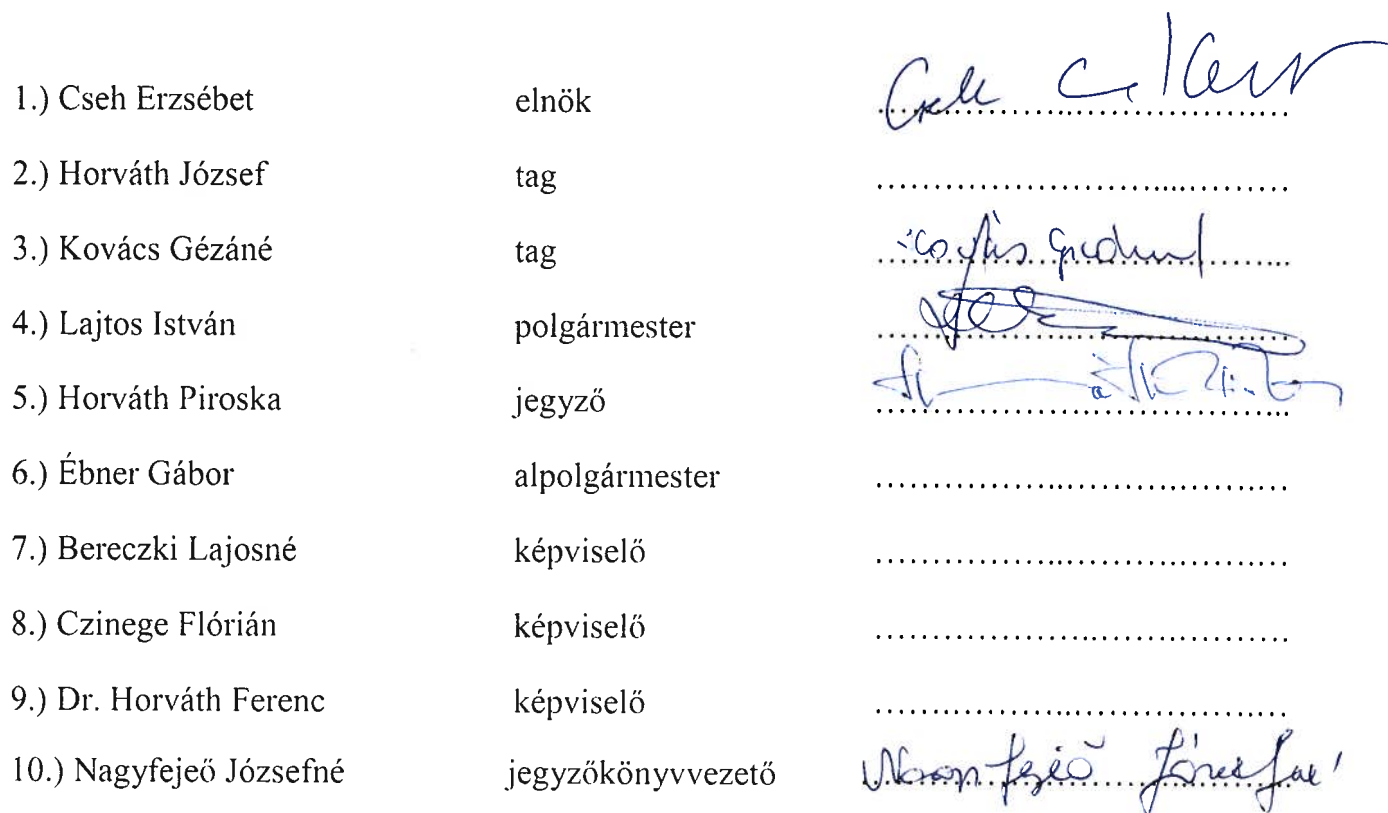 1.) Cseh Erzsébet elnök
2.) Horváth József tag ........................................
3.) Kovács Gézáné tag
4.) Lajtos István polgármester
5.) Horváth Piroska jegyző
6.) Ébner Gábor alpolgármester ........................................
7.) Bereczki Lajosné képviselő ........................................
8.) Czinege Flórián képviselő ........................................
9.) Dr. Horváth Ferenc képviselő ........................................
10.) Nagyfejeő Józsefné jegyzőkönyvvezető